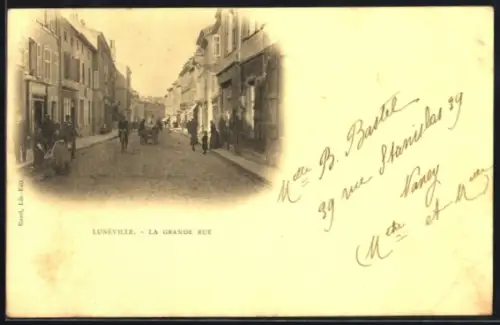 LUNÉVILLE. - LA GRANDE RUE
Melle B. Bastel
39 rue Stanislas 39
Nancy
(Melle et Mme